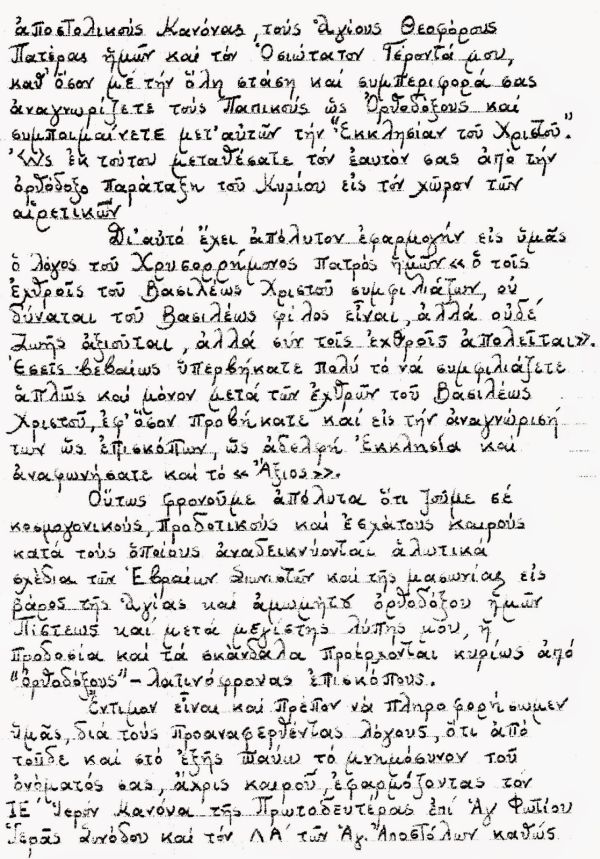 ἀποστολικούς Κανόνας, τούς Ἁγίους Θεοφόρους
Πατέρας ἡμῶν καί τόν Ὁσιώτατον Γέροντά μου,
καθ' ὅσον μέ τήν ὅλη στάση καί συμπεριφορά σας
ἀναγνωρίζετε τούς Παπικούς ὡς Ὀρθοδόξους καί
συμποιμαίνετε μετ' αὐτῶν τήν "Ἐκκλησίαν τοῦ Χριστοῦ".
Ὡς ἐκ τούτου μεταθέσατε τόν ἑαυτόν σας ἀπό τήν
ὀρθόδοξο παράταξη τοῦ Κυρίου εἰς τόν χῶρον τῶν
αἱρετικῶν
Δι' αὐτό ἔχει ἀπόλυτον ἐφαρμογήν εἰς ὑμᾶς
ὁ λόγος τοῦ Χρυσορρήμονος πατρός ἡμῶν «ὁ τοῖς
ἐχθροῖς τοῦ Βασιλέως Χριστοῦ συμφιλιάζων, οὐ
δύναται τοῦ Βασιλέως φίλος εἶναι, ἀλλά οὐδέ
ζωῆς ἀξιοῦται, ἀλλά σύν τοῖς ἐχθροῖς ἀπολεῖται».
Ἐσεῖς βεβαίως ὑπερβήκατε πολύ τό νά συμφιλιάζετε
ἁπλῶς καί μόνον μετά τῶν ἐχθρῶν τοῦ Βασιλέως
Χριστοῦ, ἐφ' ὅσον προβήκατε καί εἰς τήν ἀναγνώρισή
των ὡς ἐπισκόπων, ὡς ἀδελφή Ἐκκλησία καί
ἀναφωνήσατε καί τό «Ἄξιος».
Οὕτως φρονοῦμε ἀπόλυτα ὅτι ζοῦμε σέ
κοσμογονικούς, προδοτικούς καί ἐσχάτους καιρούς
κατά τούς ὁποίους ἀναδεικνύονται ἁλωτικά
σχέδια τῶν Ἑβραίων Σιωνιστῶν καί τῆς μασωνίας εἰς
βάρος τῆς Ἁγίας καί ἀμωμήτου ὀρθοδόξου ἡμῶν
Πίστεως καί μετά μεγίστης λύπης μου, ἡ
προδοσία καί τά σκάνδαλα προέρχονται κυρίως ἀπό
"ὀρθοδόξους" - λατινόφρονας ἐπισκόπους.
Ἔντιμον εἶναι καί πρέπον νά πληροφορήσωμεν
ὑμᾶς, διά τούς προαναφερθέντας λόγους, ὅτι ἀπό
τοῦδε καί στό ἑξῆς παύω τό μνημόσυνον τοῦ
ὀνόματός σας, ἄχρις καιροῦ, ἐφαρμόζοντας τόν
ΙΕ´ Ἱερόν Κανόνα τῆς Πρωτοδευτέρας ἐπί Ἁγ Φωτίου
Ἱερᾶς Συνόδου καί τόν ΛΑ´ τῶν Ἁγ. Ἀποστόλων καθώς